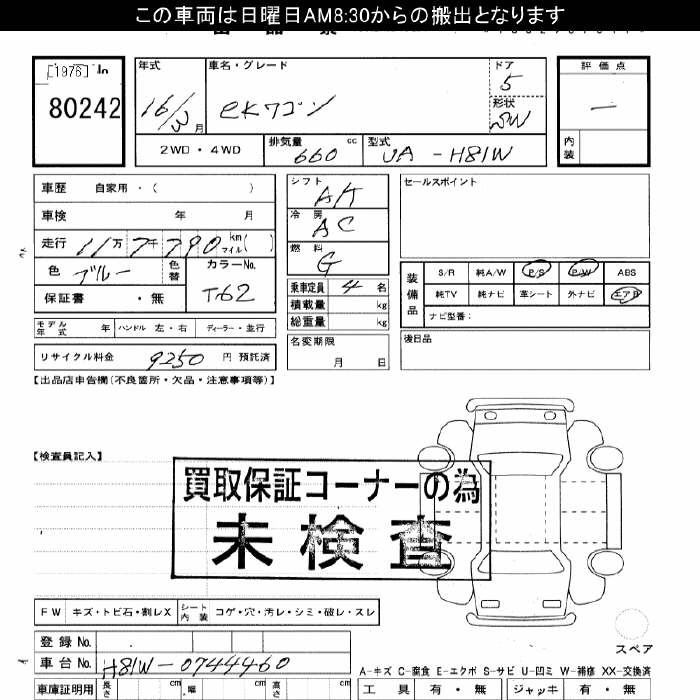 この車両は日曜日AM8:30からの搬出となります
[1976] In
80242
年式
16/3月
車名・グレード
eKワゴン
ドア
5
形状
SW
評価点
―
内装
2WD・4WD
排気量
660 cc
型式
UA-H81W
車歴 自家用・( )
車検 年 月
走行 11万7千790 km マイル ( )
色 ブルー
色替
カラーNo.
T62
保証書 ・無
モデル年式 年 ハンドル 左・右 ディーラー・並行
リサイクル料金 9250 円 預託済
シフト
AT
冷房
AC
燃料
G
乗車定員 4 名
積載量 kg
総重量 kg
名変期限
月 日
セールスポイント
装備品
S/R 純A/W P/S P/W ABS
純TV 純ナビ 革シート 外ナビ エアB
ナビ型番:
後日品
【出品店申告欄(不良箇所・欠品・注意事項等)】
【検査員記入】
買取保証コーナーの為
未検査
FW キズ・トビ石・割レX
シート内装 コゲ・穴・汚レ・シミ・破レ・スレ
スペア
登録No.
車台No. H81W-0744460
A-キズ C-腐食 E-エクボ S-サビ U-凹ミ W-補修 XX-交換済
車庫証明用 長さ cm 幅 cm 高さ cm
工具 有・無 ジャッキ 有・無